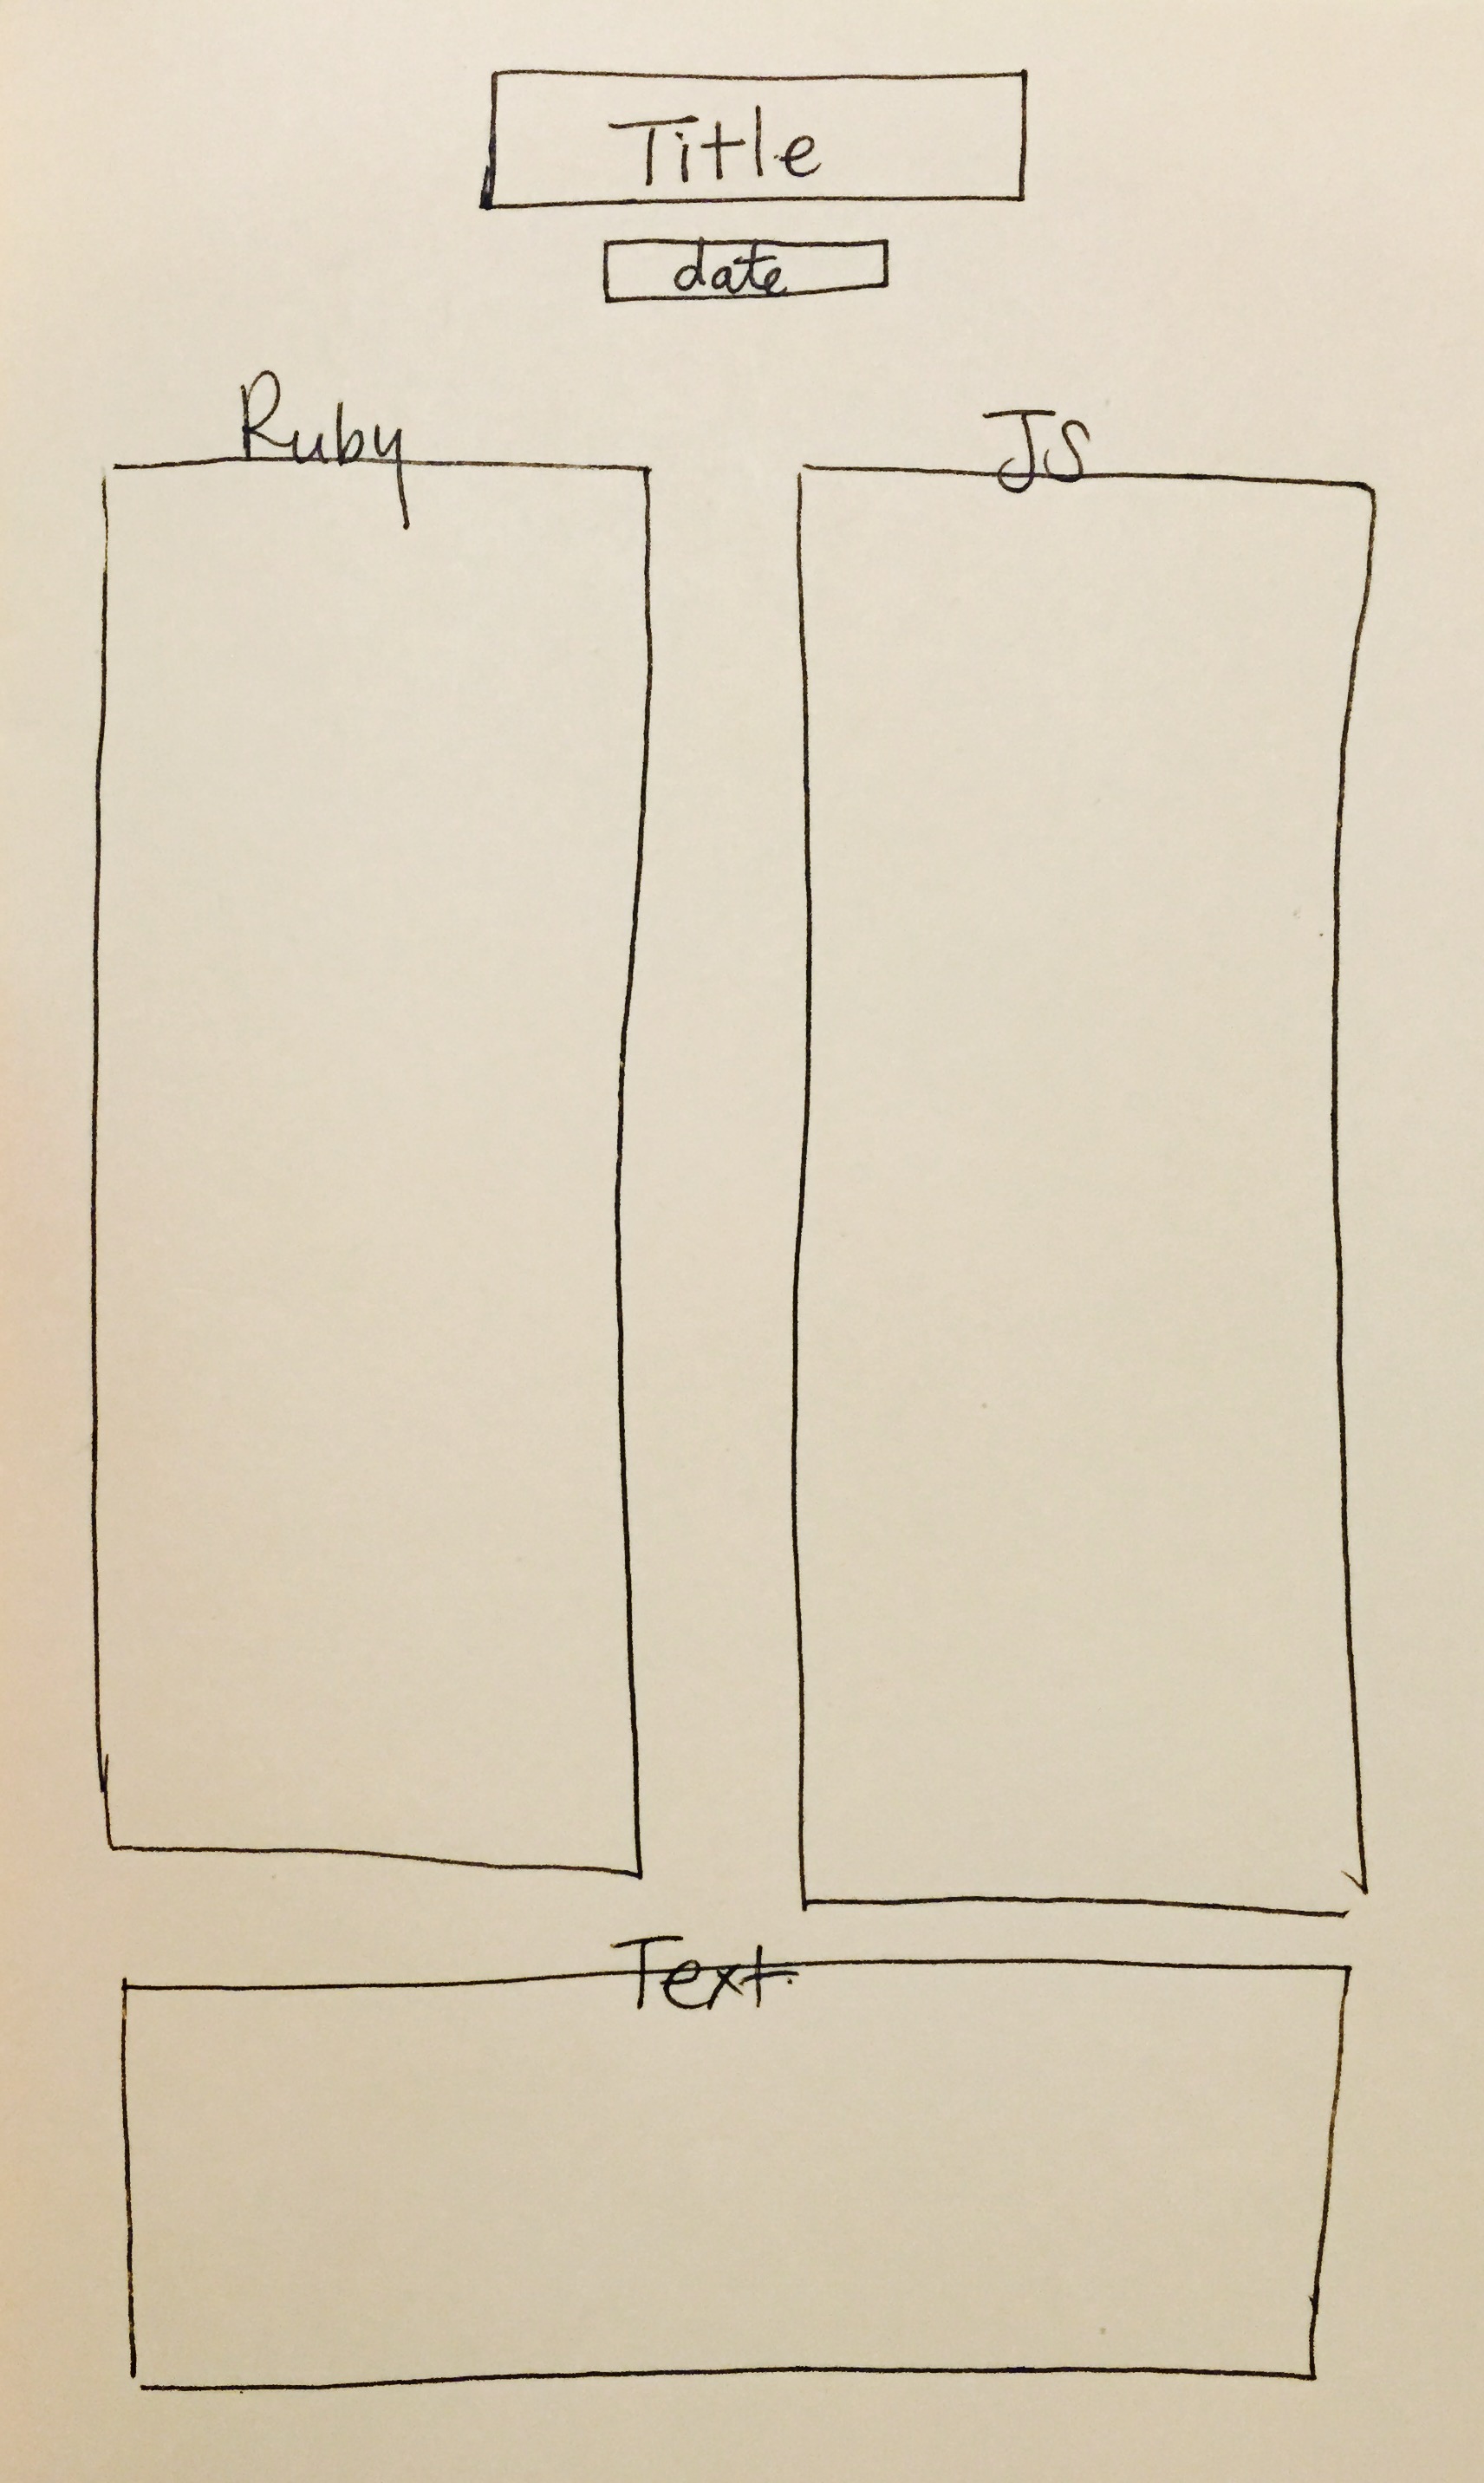 Title
date
Ruby
JS
Text